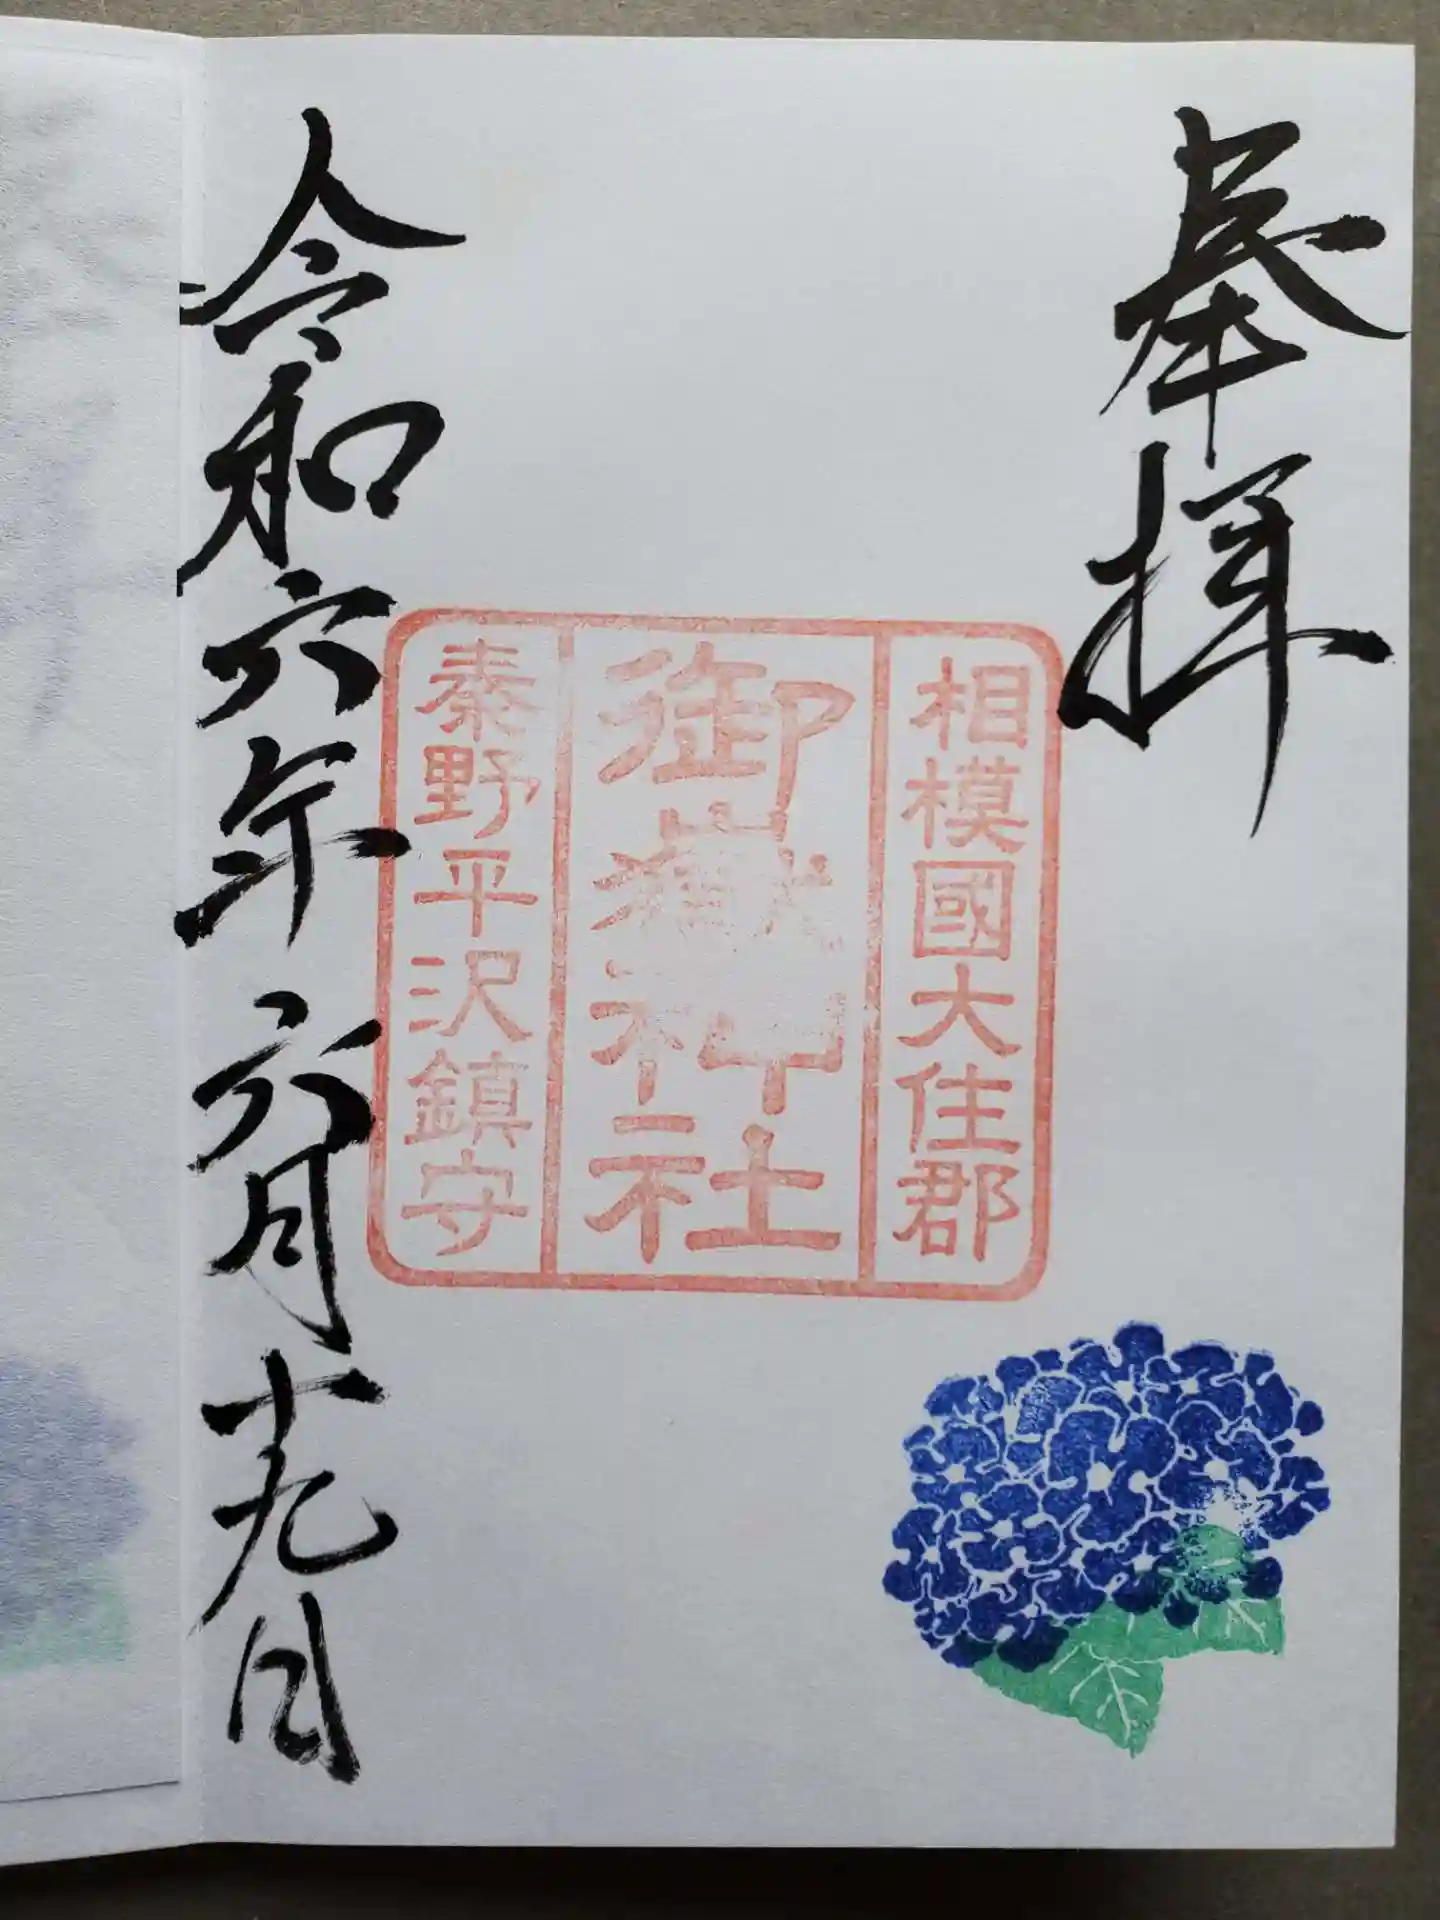 奉拝
相模國大住郡
御嶽神社
秦野平沢鎮守
令和六年六月十九日